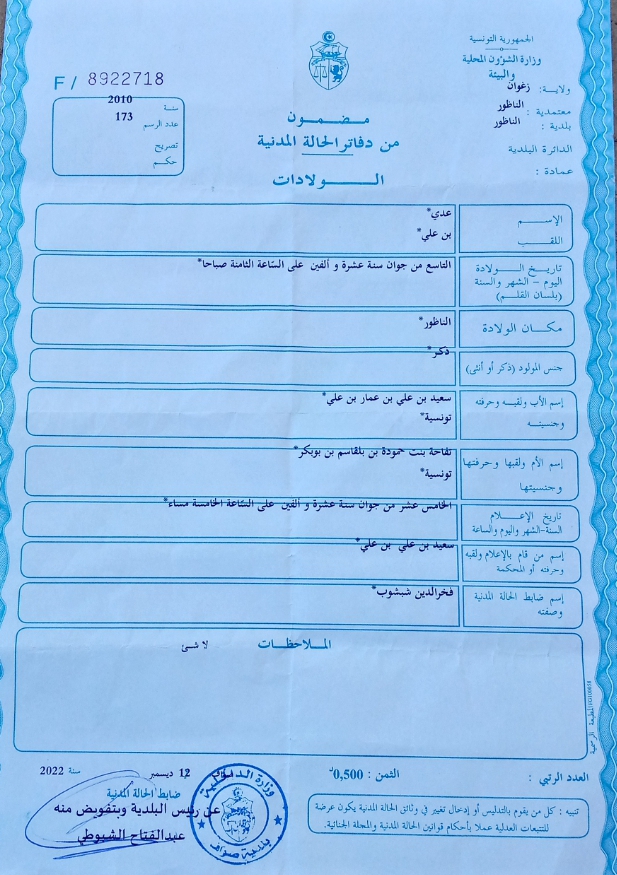 الجمهورية التونسية
وزارة الشؤون المحلية
والبيئة
ولاية: زغوان
معتمدية : الناظور
بلدية : الناظور
الدائرة البلدية
عمادة :
F / 8922718
سنة 2010
عدد الرسم 173
تصريح
حكم
مضمون
من دفاتر الحالة المدنية
الولادات
الإسم عدي*
اللقب بن علي*
تاريخ الولادة التاسع من جوان سنة عشرة و ألفين على السّاعة الثامنة صباحا*
اليوم – الشهر والسنة
(بلسان القلم)
مكان الولادة الناظور*
جنس المولود (ذكر أو أنثى) ذكر*
إسم الأب ولقبه وحرفته سعيد بن علي بن عمار بن علي*
وجنسيته تونسية*
إسم الأم ولقبها وحرفتها تفاحة بنت حمودة بن بلقاسم بن بوبكر*
وجنسيتها تونسية*
تاريخ الإعلام الخامس عشر من جوان سنة عشرة و ألفين على السّاعة الخامسة مساء*
السنة-الشهر واليوم والساعة
إسم من قام بالإعلام ولقبه سعيد بن علي بن علي*
وحرفته أو المحكمة
إسم ضابط الحالة المدنية فخرالدين شبشوب*
وصفته
الملاحظات لا شئ
المطبعة الرسمية
العدد الرتبي :
الثمن : 0,500د
12 ديسمبر سنة 2022
ضابط الحالة المدنية
عن رئيس البلدية وبتفويض منه
عبدالفتاح الشيوطي
وزارة الداخلية
بلدية صواف
تنبيه : كل من يقوم بالتدليس أو إدخال تغيير في وثائق الحالة المدنية يكون عرضة
للتتبعات العدلية عملا بأحكام قوانين الحالة المدنية والمجلة الجنائية.